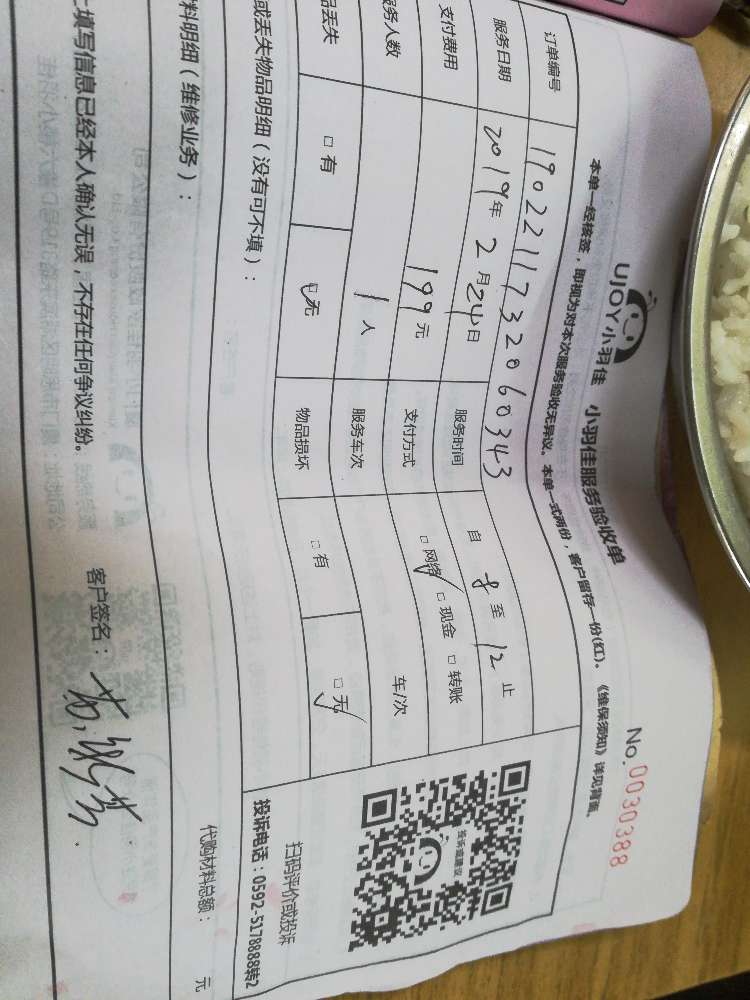 UJOY小羽佳 小羽佳服务验收单
No.0030388
本单一经核签，即视为对本次服务验收无异议。本单一式两份，客户留存一份(红)。《维保须知》详见背面。
订单编号 190221173206 0343
服务日期 2019年2月24日 服务时间 自 8 至 12 止
支付费用 199元 支付方式 □网络 □现金 □转账
服务人数 1人 服务车次 车/次
品丢失 □有 □无 物品损坏 □有 □无
或丢失物品明细（没有可不填）：
投诉或建议
扫码评价或投诉
投诉电话：0592-5178888转2
料明细（维修业务）：
代购材料总额： 元
上填写信息已经本人确认无误，不存在任何争议纠纷。 客户签名：